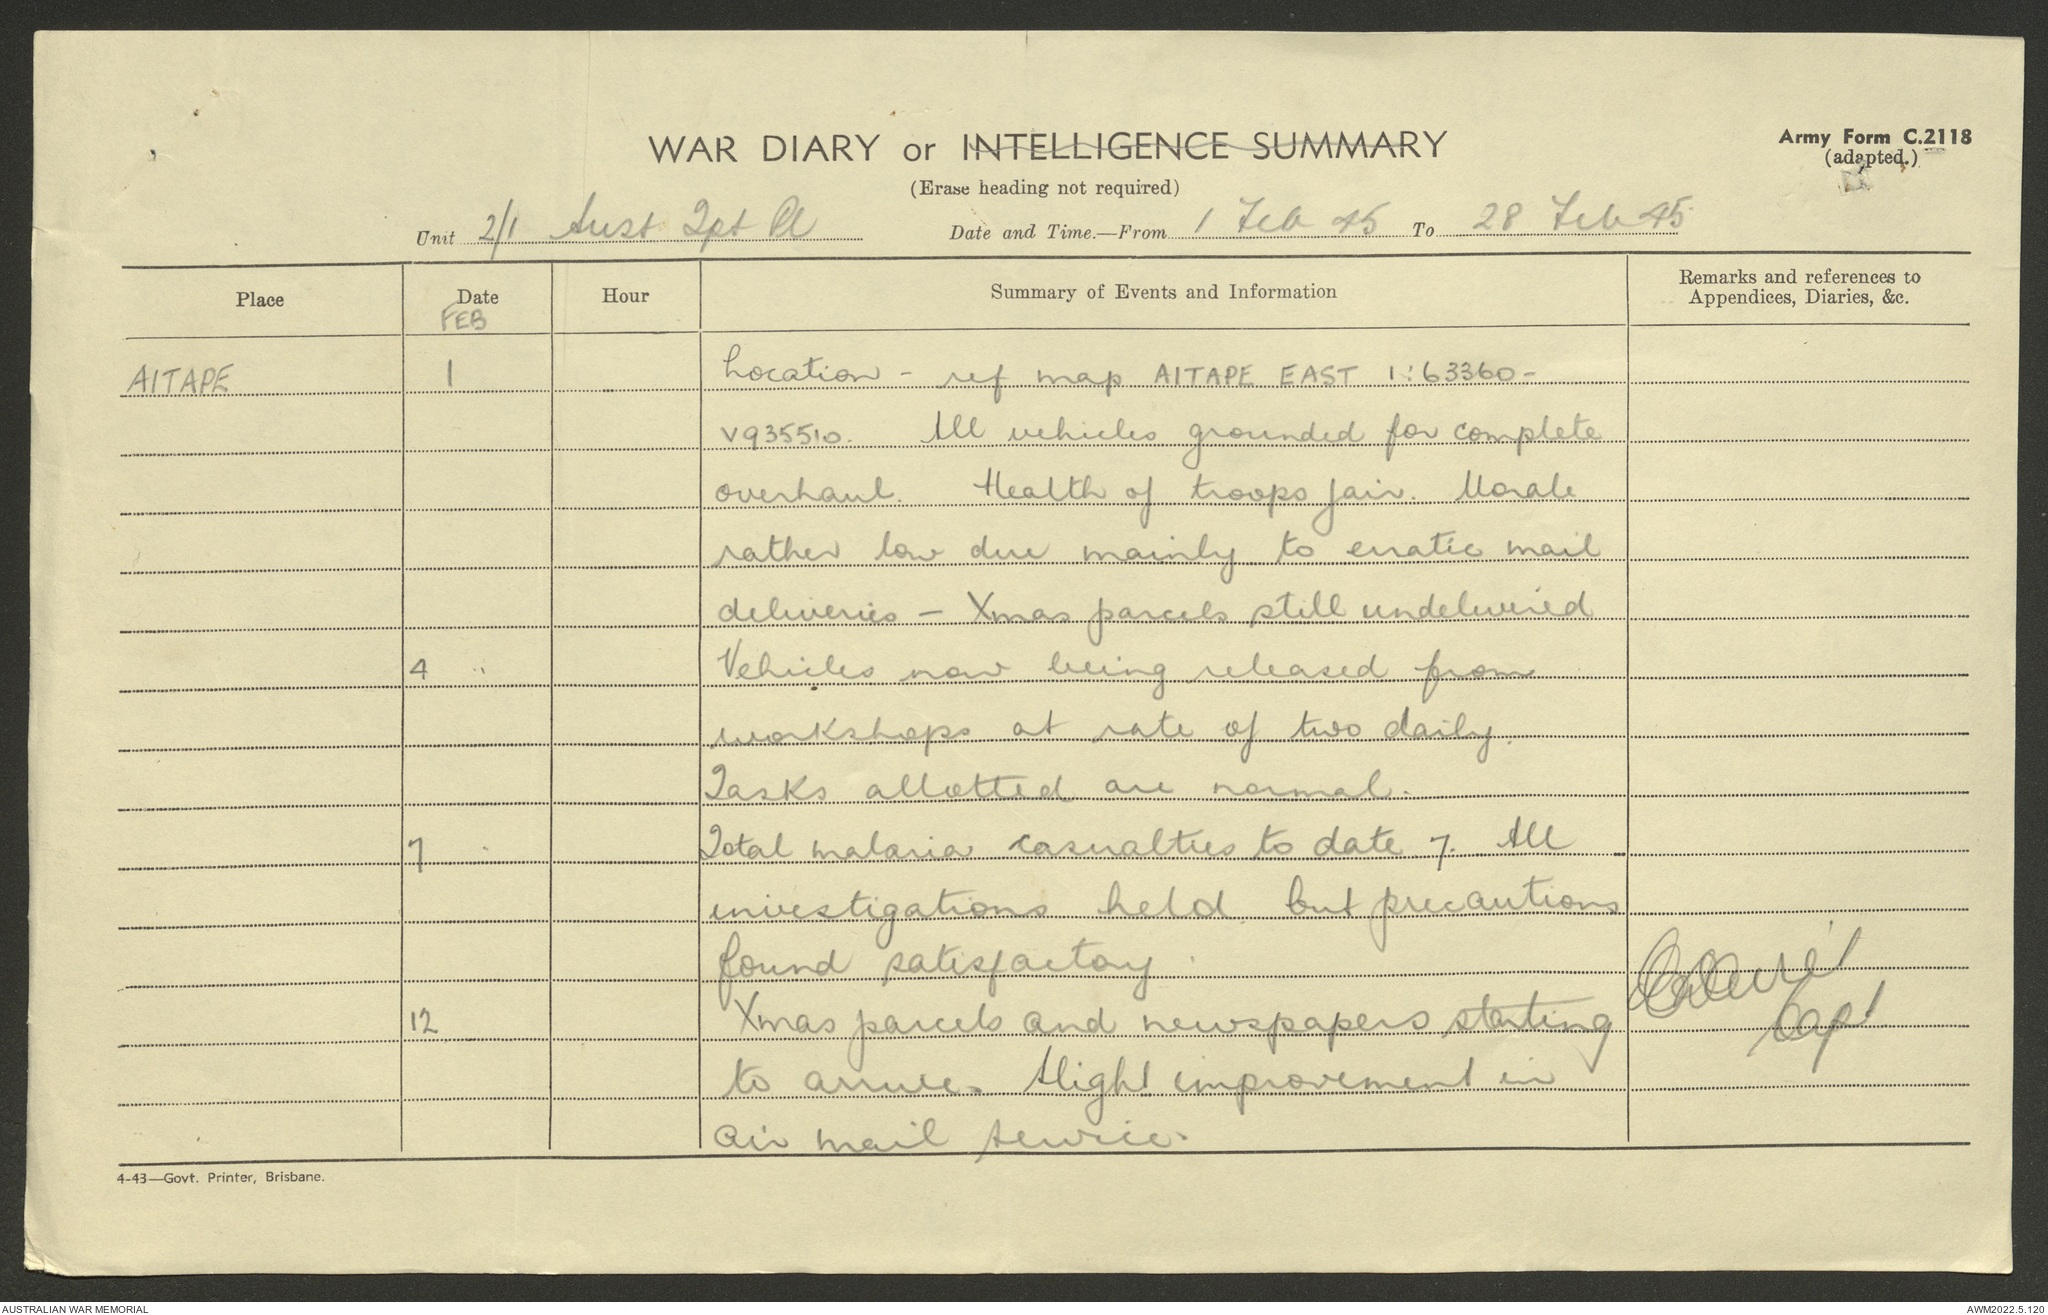 WAR DIARY or INTELLIGENCE SUMMARY
Army Form C.2118
(adapted.)
(Erase heading not required)
Unit 2/1 Aust 2pt Pl Date and Time.—From 1 Feb 45 To 28 Feb 45
Place Date Hour Summary of Events and Information Remarks and references to Appendices, Diaries, &c.
FEB
AITAPE 1 Location - ref map AITAPE EAST 1:63360-
V935510. All vehicles grounded for complete
overhaul. Health of troops fair. Morale
rather low due mainly to erratic mail
deliveries - Xmas parcels still undelivered
4 " Vehicles now being released from
workshops at rate of two daily.
Tasks allotted are normal.
7 " Total malaria casualties to date 7. All
investigations held but precautions
found satisfactory.
12 Xmas parcels and newspapers starting
to arrive. Slight improvement in
air mail service.
Capt
4-43—Govt. Printer, Brisbane.
AUSTRALIAN WAR MEMORIAL
AWM2022.5.120